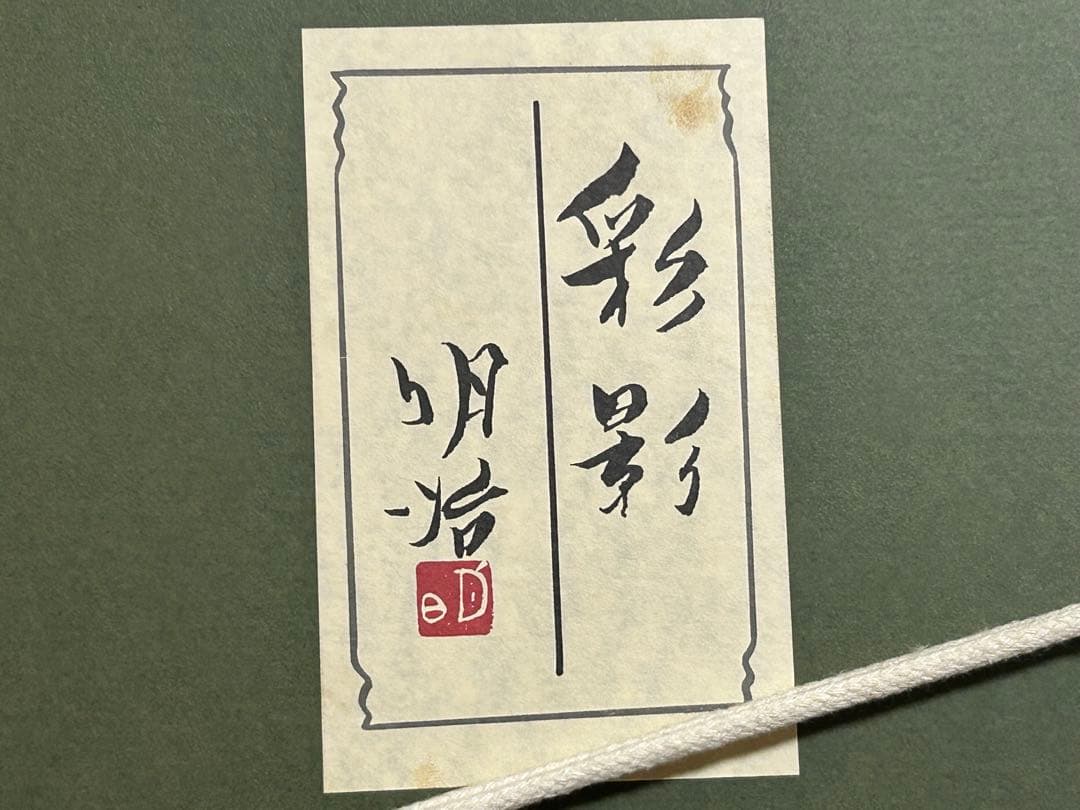 彩影
明治
明